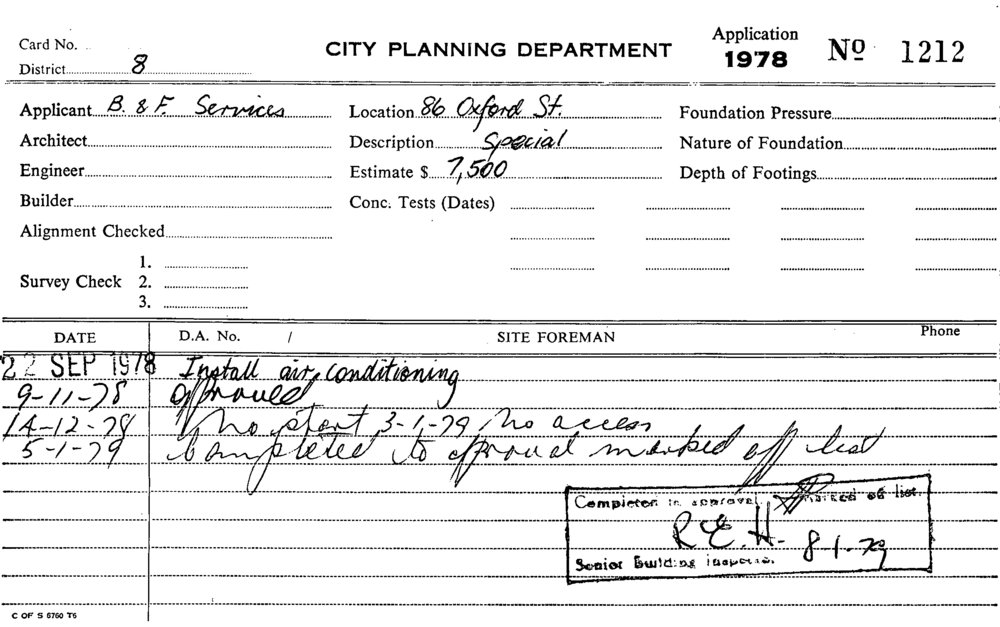 Card No.
CITY PLANNING DEPARTMENT
Application
1978 Nº 1212
District 8
Applicant B. & F. Services
Location 86 Oxford St.
Foundation Pressure
Architect
Description Special
Nature of Foundation
Engineer
Estimate $ 7,500
Depth of Footings
Builder
Conc. Tests (Dates)
Alignment Checked
Survey Check
1.
2.
3.
DATE D.A. No. / SITE FOREMAN Phone
22 SEP 1978 Install air conditioning
9-11-78 approved
14-12-78 no start 3-1-79 no access
5-1-79 Completed to approval marked off list
Completed to approval marked off list.
R.E.H. 8-1-79
Senior Building Inspector.
C OF S 6760 T6